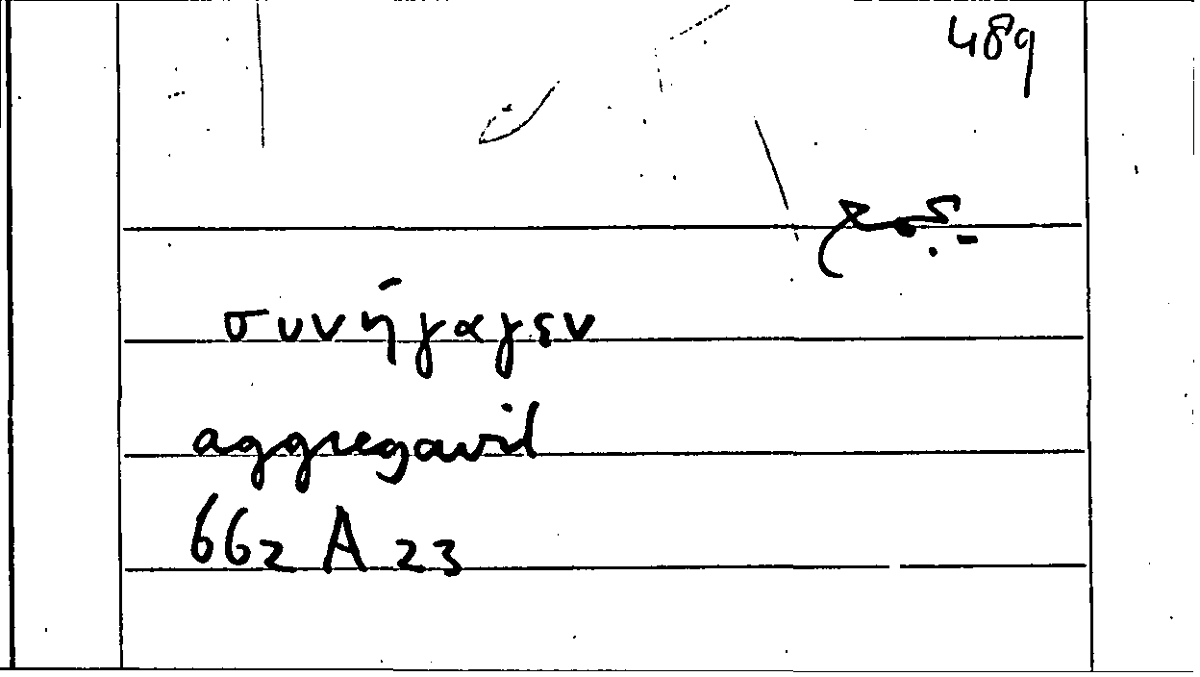 489
συνήγαγεν
aggregavit
662 A 23